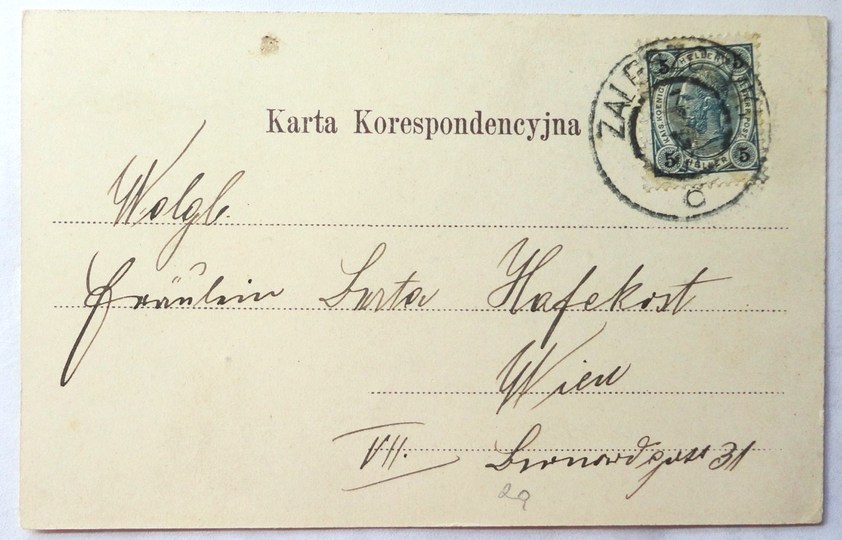 Karta Korespondencyjna
ZALE
5 HELLER 5
KAIS. KOENIGL.
5 HELLER 5
C
Wolgb.
Fräulein Berta Hafekost
Wien
VII. Bernardgasse 31
29